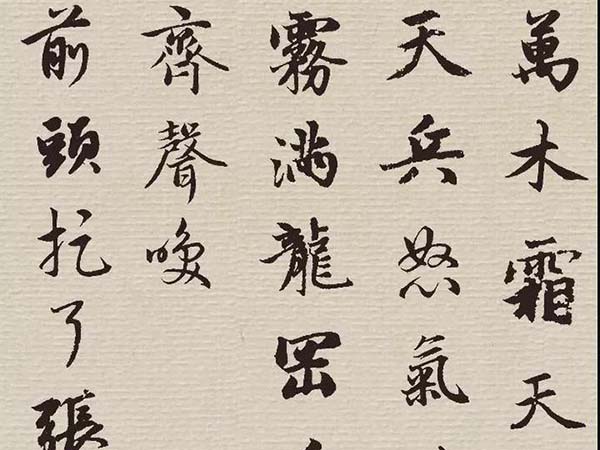 萬木霜天
天兵怒氣
霧滿龍岡
齊聲喚
前頭捉了張